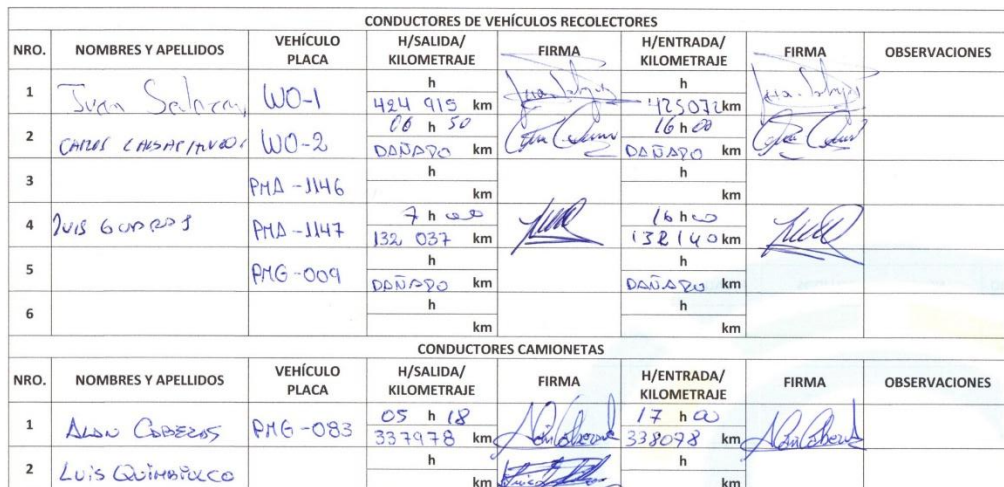 CONDUCTORES DE VEHÍCULOS RECOLECTORES
NRO. NOMBRES Y APELLIDOS VEHÍCULO PLACA H/SALIDA/ KILOMETRAJE FIRMA H/ENTRADA/ KILOMETRAJE FIRMA OBSERVACIONES
1 Juan Salazar WO-1 h h
424 915 km 425072 km
2 CARLOS WO-2 06 h 50 16 h 00
DAÑADO km DAÑADO km
3 PMA-1146 h h
km km
4 LUIS PMA-1147 7 h 00 16 h 00
132 037 km 132140 km
5 PMG-009 h h
DAÑADO km DAÑADO km
6 h h
km km
CONDUCTORES CAMIONETAS
NRO. NOMBRES Y APELLIDOS VEHÍCULO PLACA H/SALIDA/ KILOMETRAJE FIRMA H/ENTRADA/ KILOMETRAJE FIRMA OBSERVACIONES
1 ALAN CABEZAS PMG-083 05 h 18 17 h 00
337978 km 338078 km
2 LUIS QUIMBIULCO h h
km km